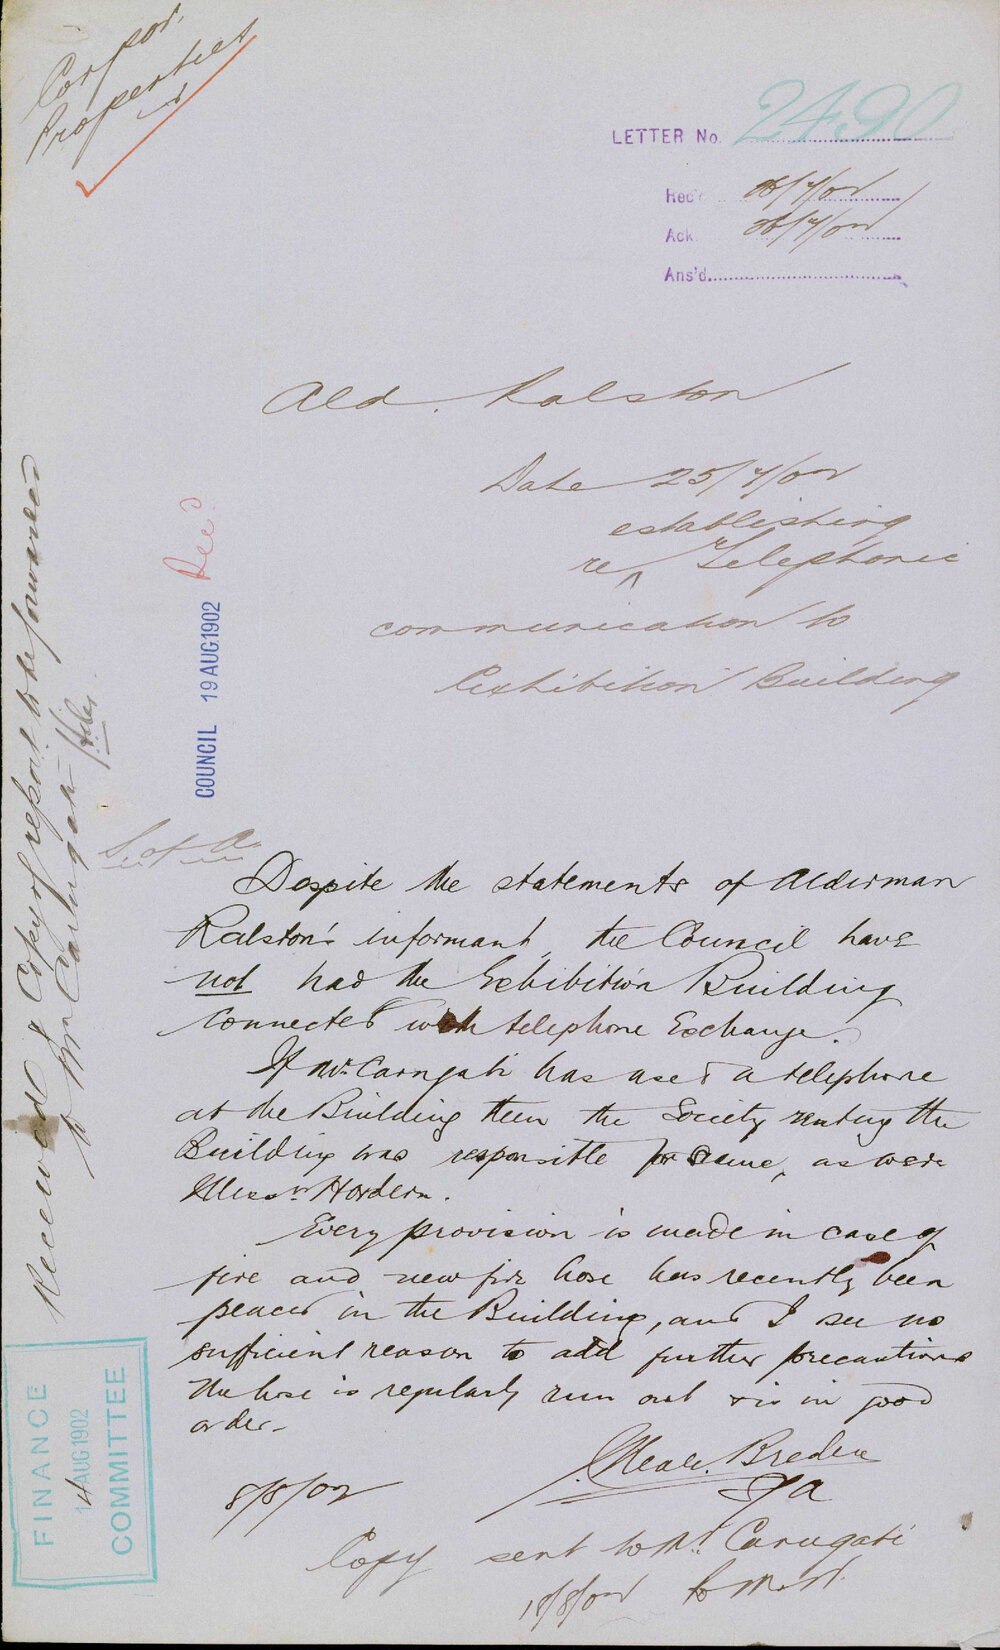 Corpor.
Properties
LETTER No. 2490
Rec'd 26/7/02
Ack. 26/7/02
Ans'd
Ald. Ralston
Date 25/7/02
establishing
re ^ Telephonic
communication to
Exhibition Building
Received Copy of report to be forwarded
to Mr Carugati
COUNCIL 19 AUG 1902 Rec'd
Despite the statements of Alderman
Ralston's informant, the Council have
not had the Exhibition Building
connected with telephone Exchange.
If Mr. Carugati has used a telephone
at the Building then the Society renting the
Building was responsible for same, as were
Messrs Hordern.
Every provision is made in case of
fire and new fire hose has recently been
placed in the Building, and I see no
sufficient reason to add further precautions
The hose is regularly run out & is in good
order.
Neale Breden
8/8/02
FINANCE
14 AUG 1902
COMMITTEE
Copy sent to Mr. Carugati
18/8/02